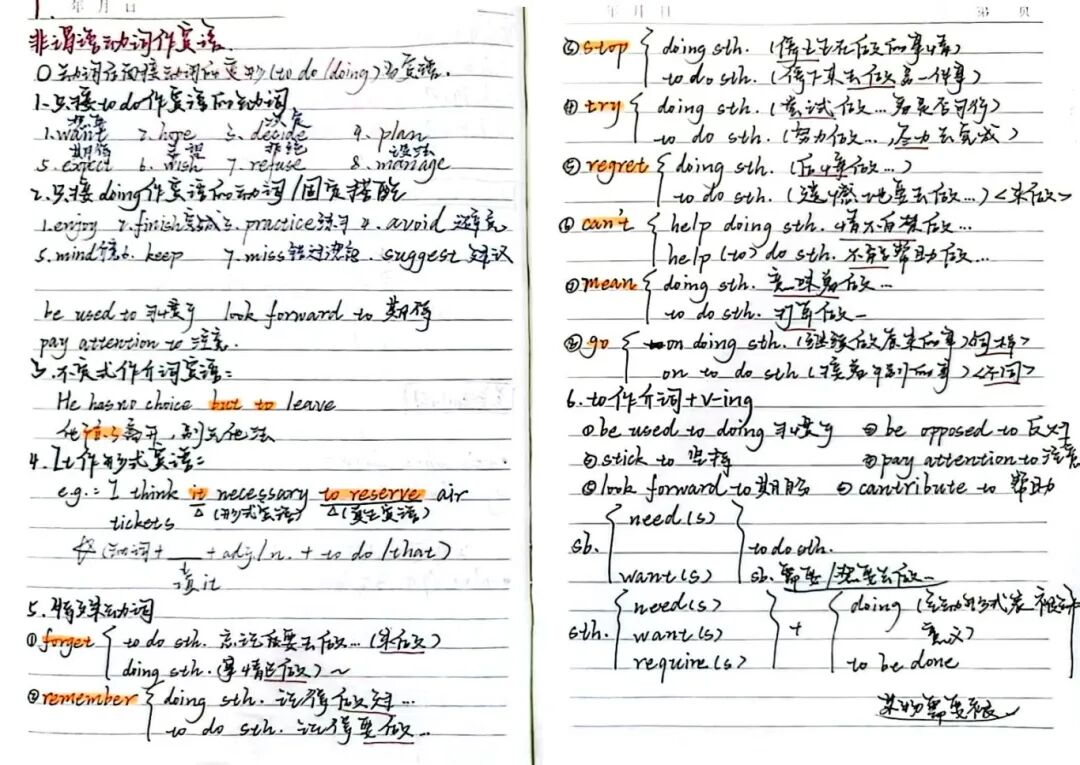 年 月 日
非谓语动词作宾语
①动词后面接动词的变形(to do/doing)为宾语.
1.只接to do作宾语的动词
想要 决定
1.want 2.hope 3.decide 4.plan
期待 希望 拒绝 设法
5.expect 6.wish 7.refuse 8.manage
2.只接doing作宾语的动词/固定搭配
1.enjoy 2.finish完成 3.practice练习 4.avoid 避免
5.mind 6.keep 7.miss错过 suggest 建议
be used to 习惯于 look forward to 期待
pay attention to 注意.
3.不定式作介词宾语:
He has no choice but to leave
他 离开,别无他法
4.It作形式宾语:
e.g.: I think it necessary to reserve air
(形式宾语) (真正宾语)
tickets
(动词+ ___ +adj/n. + to do/that)
填it
5.特殊动词
①forget to do sth. 忘记要去做… (未做)
doing sth. (事情已做)~
②remember doing sth. 记得做过…
to do sth. 记得要做…
年 月 日 第 页
③stop doing sth. (停止正在做的事情)
to do sth. (停下来去做另一件事)
④try doing sth. (尝试做…看是否可行)
to do sth. (努力做…,尽力去完成)
⑤regret doing sth. (后悔做…)
to do sth. (遗憾地要去做…)<未做>
⑥can't help doing sth. 情不自禁做…
help (to) do sth. 不能帮助做…
⑦mean doing sth. 意味着做…
to do sth. 打算做…
⑧go on doing sth. (继续做原来的事)<同样>
on to do sth (接着干别的事)<不同>
6.to作介词+v-ing
①be used to doing 习惯于 be opposed to 反对
stick to 坚持 pay attention to 注意
look forward to 期盼 cantribute to 帮助
need(s)
sb. to do sth.
want(s) sb. 需要/想要去做…
need(s) doing (主动形式表被动
sth. want(s) + 意义)
require(s) to be done
某物需要被